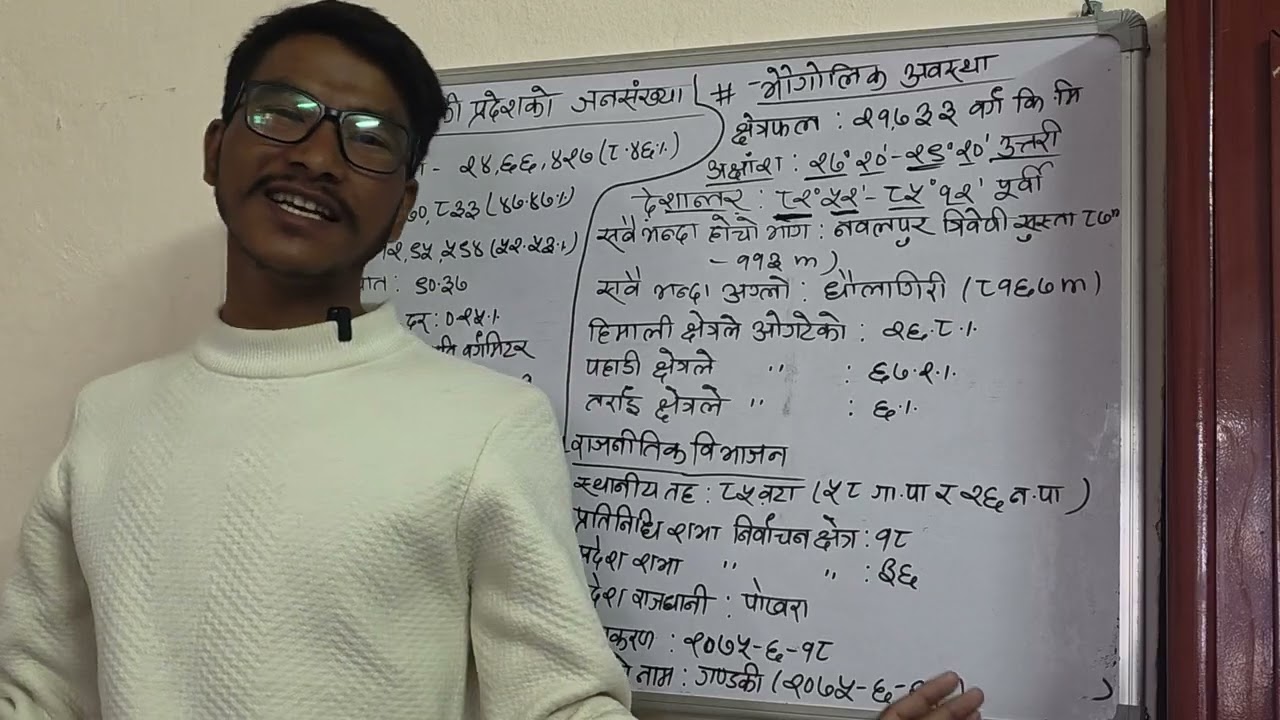 की प्रदेशको जनसंख्या
- २४,६६,४२७ (८.४६%)
७०,८३३ (४७.४७%)
१२,९५,५९४ (५२.५३%)
: ९०.३७
दर: ०.२५%
वर्गमिटर
# - भौगोलिक अवस्था
क्षेत्रफल : २१,७३३ वर्ग कि.मि
अक्षांश : २७°२०' - २९°२०' उत्तरी
देशान्तर : ८२°५२' - ८५°१२' पूर्वी
सबै भन्दा होचो भाग : नवलपुर त्रिवेणी सुस्ता
- ११३ m)
सबै भन्दा अग्लो : धौलागिरी (८१६७m)
हिमाली क्षेत्रले ओगटेको : २६.८%
पहाडी क्षेत्रले " : ६७.२%
तराई क्षेत्रले " : ६%
राजनीतिक विभाजन
स्थानीय तह : ८५ वटा (५८ गा.पा र २६ न.पा)
प्रतिनिधि सभा निर्वाचन क्षेत्र : १८
प्रदेश सभा " " : ३६
देश राजधानी : पोखरा
करण : २०७५-६-१८
नाम : गण्डकी (२०७५-६-